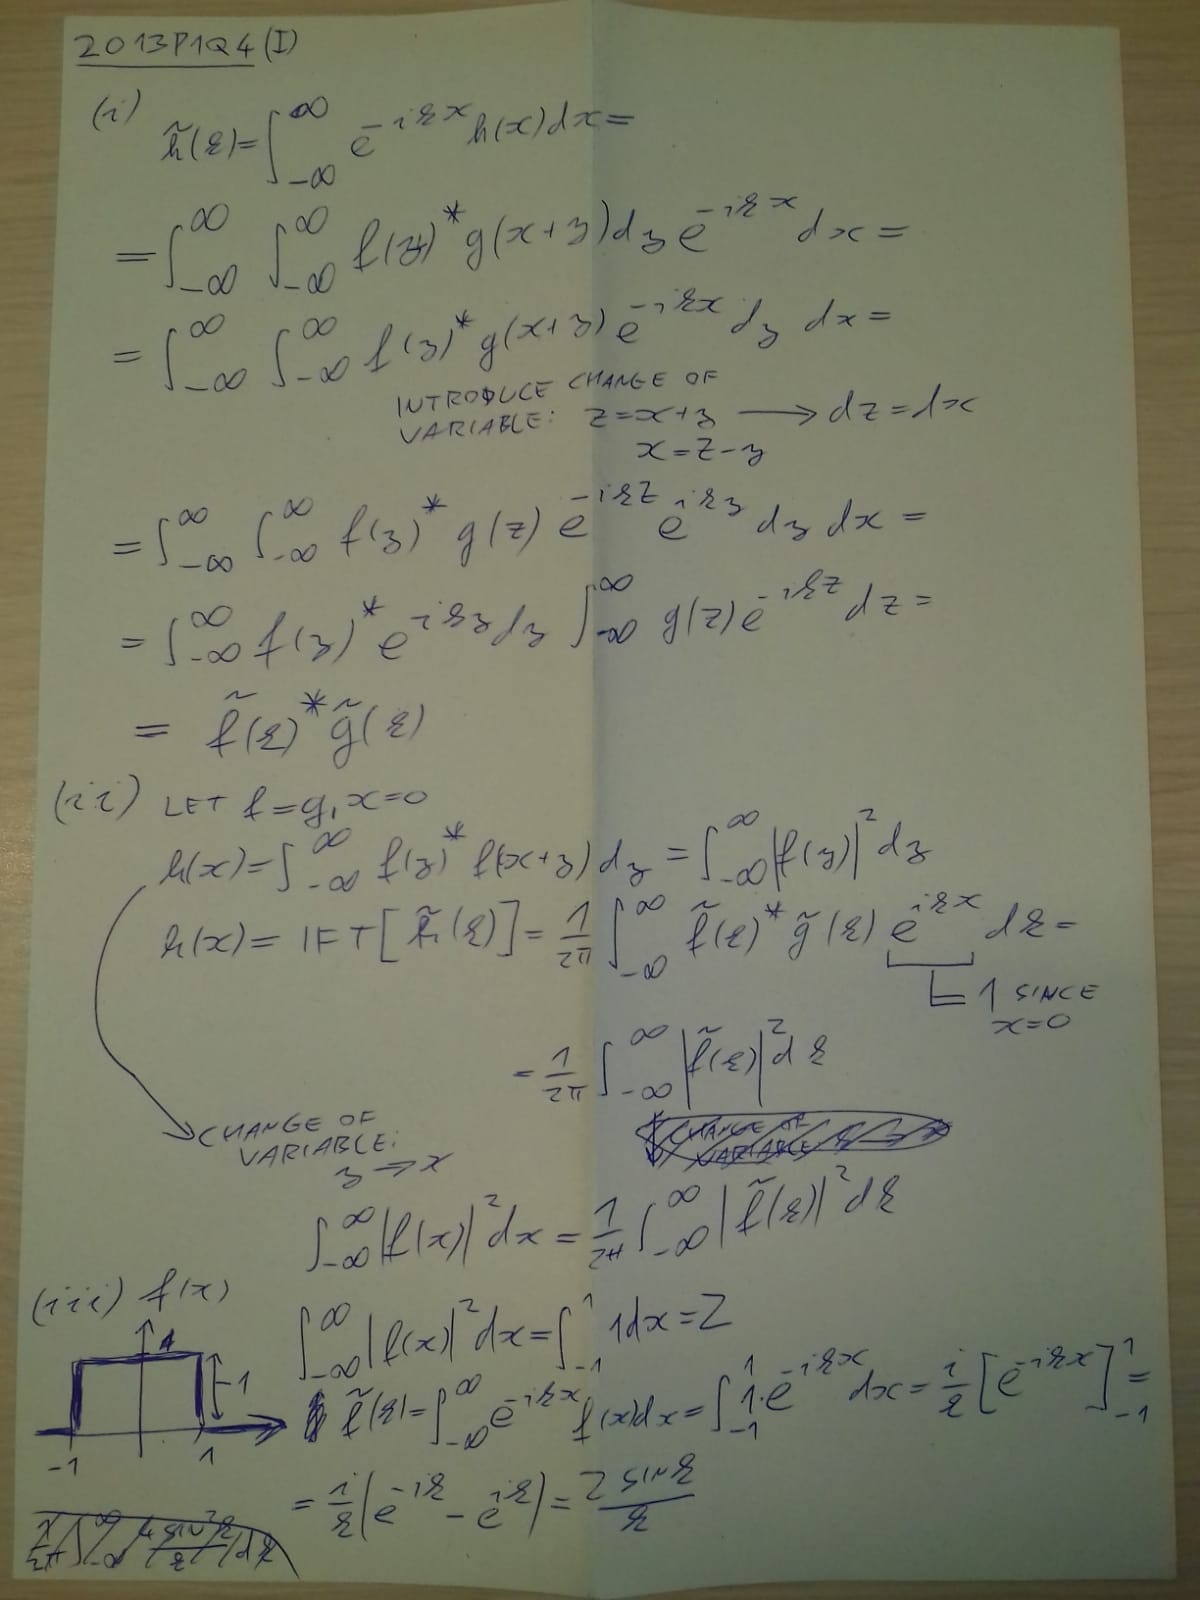 2013P1Q4(I)
(i)
h̃(k)=∫_{-∞}^{∞} e^{-ikx} h(x)dx=
=∫_{-∞}^{∞} ∫_{-∞}^{∞} f(y)^* g(x+y)dy e^{-ikx} dx=
=∫_{-∞}^{∞} ∫_{-∞}^{∞} f(y)^* g(x+y) e^{-ikx} dy dx=
INTRODUCE CHANGE OF
VARIABLE: z=x+y ⟶ dz=dx
x=z-y
=∫_{-∞}^{∞} ∫_{-∞}^{∞} f(y)^* g(z) e^{-ikz} e^{iky} dy dx =
=∫_{-∞}^{∞} f(y)^* e^{iky} dy ∫_{-∞}^{∞} g(z) e^{-ikz} dz=
= f̃(k)^* g̃(k)
(ii) LET f=g, x=0
h(x)=∫_{-∞}^{∞} f(y)^* f(x+y) dy =∫_{-∞}^{∞} |f(y)|^2 dy
h(x)= IFT[h̃(k)]=1/2π ∫_{-∞}^{∞} f̃(k)^* g̃(k) e^{ikx} dk=
=1 SINCE
x=0
=1/2π ∫_{-∞}^{∞} |f̃(k)|^2 dk
CHANGE OF
VARIABLE
CHANGE OF
VARIABLE:
y→x
∫_{-∞}^{∞} |f(x)|^2 dx = 1/2π ∫_{-∞}^{∞} |f̃(k)|^2 dk
(iii) f(x)
1
-1
1
∫_{-∞}^{∞} |f(x)|^2 dx=∫_{-1}^{1} 1dx=2
f̃(k)=∫_{-∞}^{∞} e^{-ikx} f(x)dx=∫_{-1}^{1} 1·e^{-ikx} dx= i/k [e^{-ikx}]_{-1}^{1}=
= i/k (e^{-ik} - e^{ik})= 2 sin k / k